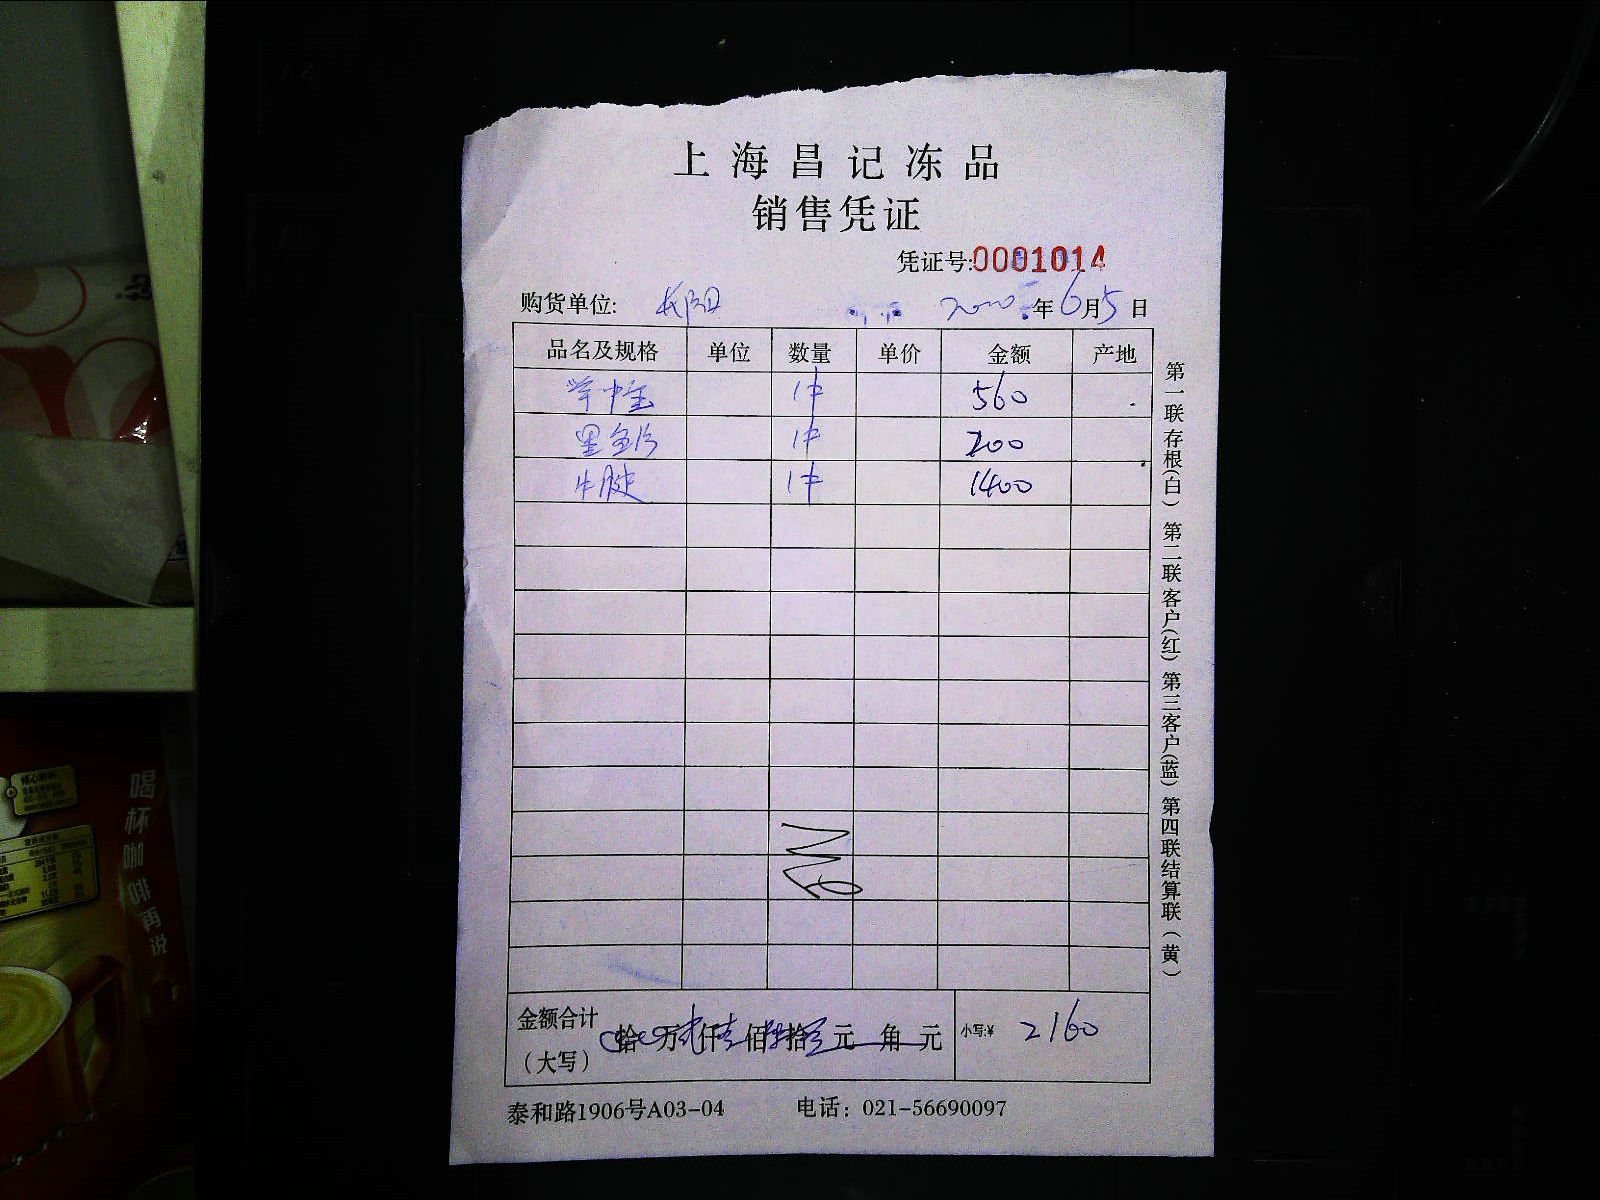 上海昌记冻品
销售凭证
凭证号:0001014
购货单位: 年6月5日
品名及规格 单位 数量 单价 金额 产地
1件 560
1件 200
1件 1400
金额合计(大写) 拾 万 仟 佰 拾 元 角 元 小写:¥ 2160
泰和路1906号A03-04 电话：021-56690097
第一联存根(白) 第二联客户(红) 第三客户(蓝) 第四联结算联(黄)
喝杯咖啡再说